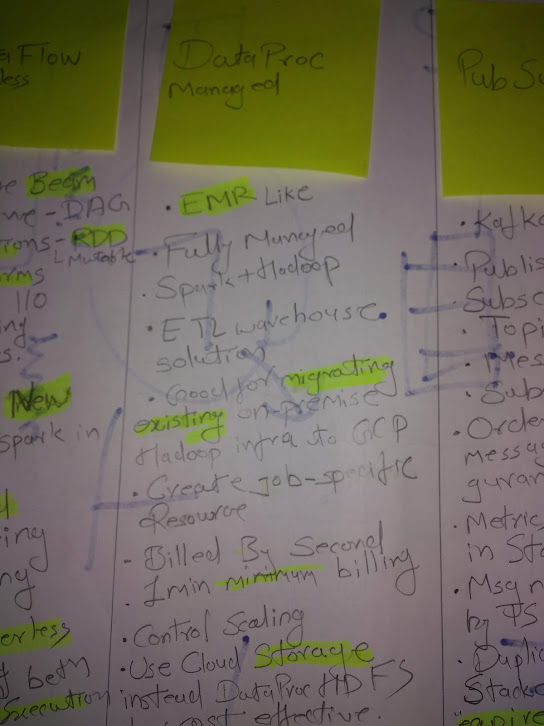 Flow
less
Beam
DAG
RDD
Mutable
I/O
New
spark in
beth
DataProc
Managed
• EMR Like
• Fully Managed
• Spark + Hadoop
• ETL warehouse
solution
• Good for migrating
existing on-premise
Hadoop infra to GCP
• Create job-specific
Resource
- Billed By Second
• 1 min minimum billing
• Control Scaling
• Use Cloud Storage
instead DataProc HDFS
cost effective.
PubSu
• Kafka
• Publis
• Subsc
• Topi
• Mes
• Subs
• Order
messag
guran
• Metric
in Sta
• Msg
by TS
• Duplic
Stack